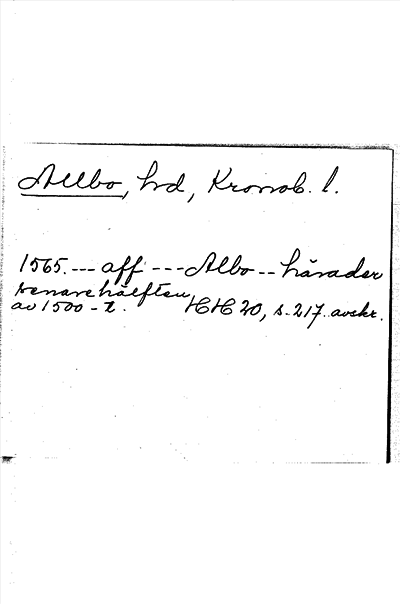 Allbo, hd, Kronob. l.
1565. --- aff --- Albo -- härader
senare hälften
av 1500-t. HH 20, s. 217. avskr.